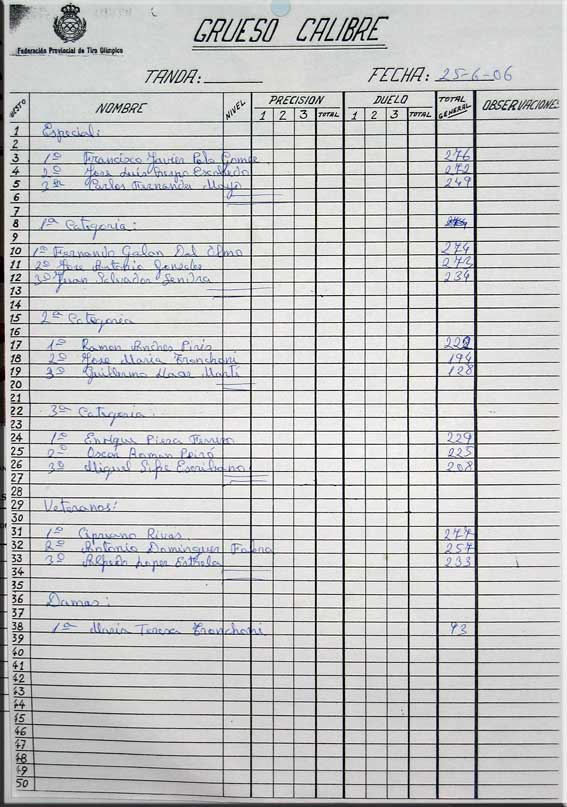 Federación Provincial de Tiro Olímpico
GRUESO CALIBRE
TANDA: FECHA: 25-6-06
PUESTO NOMBRE NIVEL PRECISION DUELO TOTAL GENERAL OBSERVACIONES
1 2 3 TOTAL 1 2 3 TOTAL
1 Especial:
2
3 1º Francisco Javier Polo Gomez 276
4 2º Jose Luis Crespo Escobedo 272
5 3er Carlos Fernandez Mayo 249
6
7
8 1ª Categoria:
9
10 1º Fernando Galan Del Olmo 274
11 2º Jose Antonio Gonzalez 272
12 3º Juan Salvador Sendra 234
13
14
15 2ª Categoria
16
17 1º Ramon Piris 222
18 2º Jose Maria Tronchoni 194
19 3º Guillermo Martí 128
20
21
22 3ª Categoria:
23
24 1º Enrique Piera 229
25 2º Oscar Roman Peiró 225
26 3º Miguel Sifre Escribano 208
27
28
29 Veteranos:
30
31 1º Cipriano Rivas 277
32 2º Antonio Dominguez 257
33 3º Alfredo Lopez 233
34
35
36 Damas:
37
38 1ª Maria Teresa Tronchoni 93
39
40
41
42
43
44
45
46
47
48
49
50